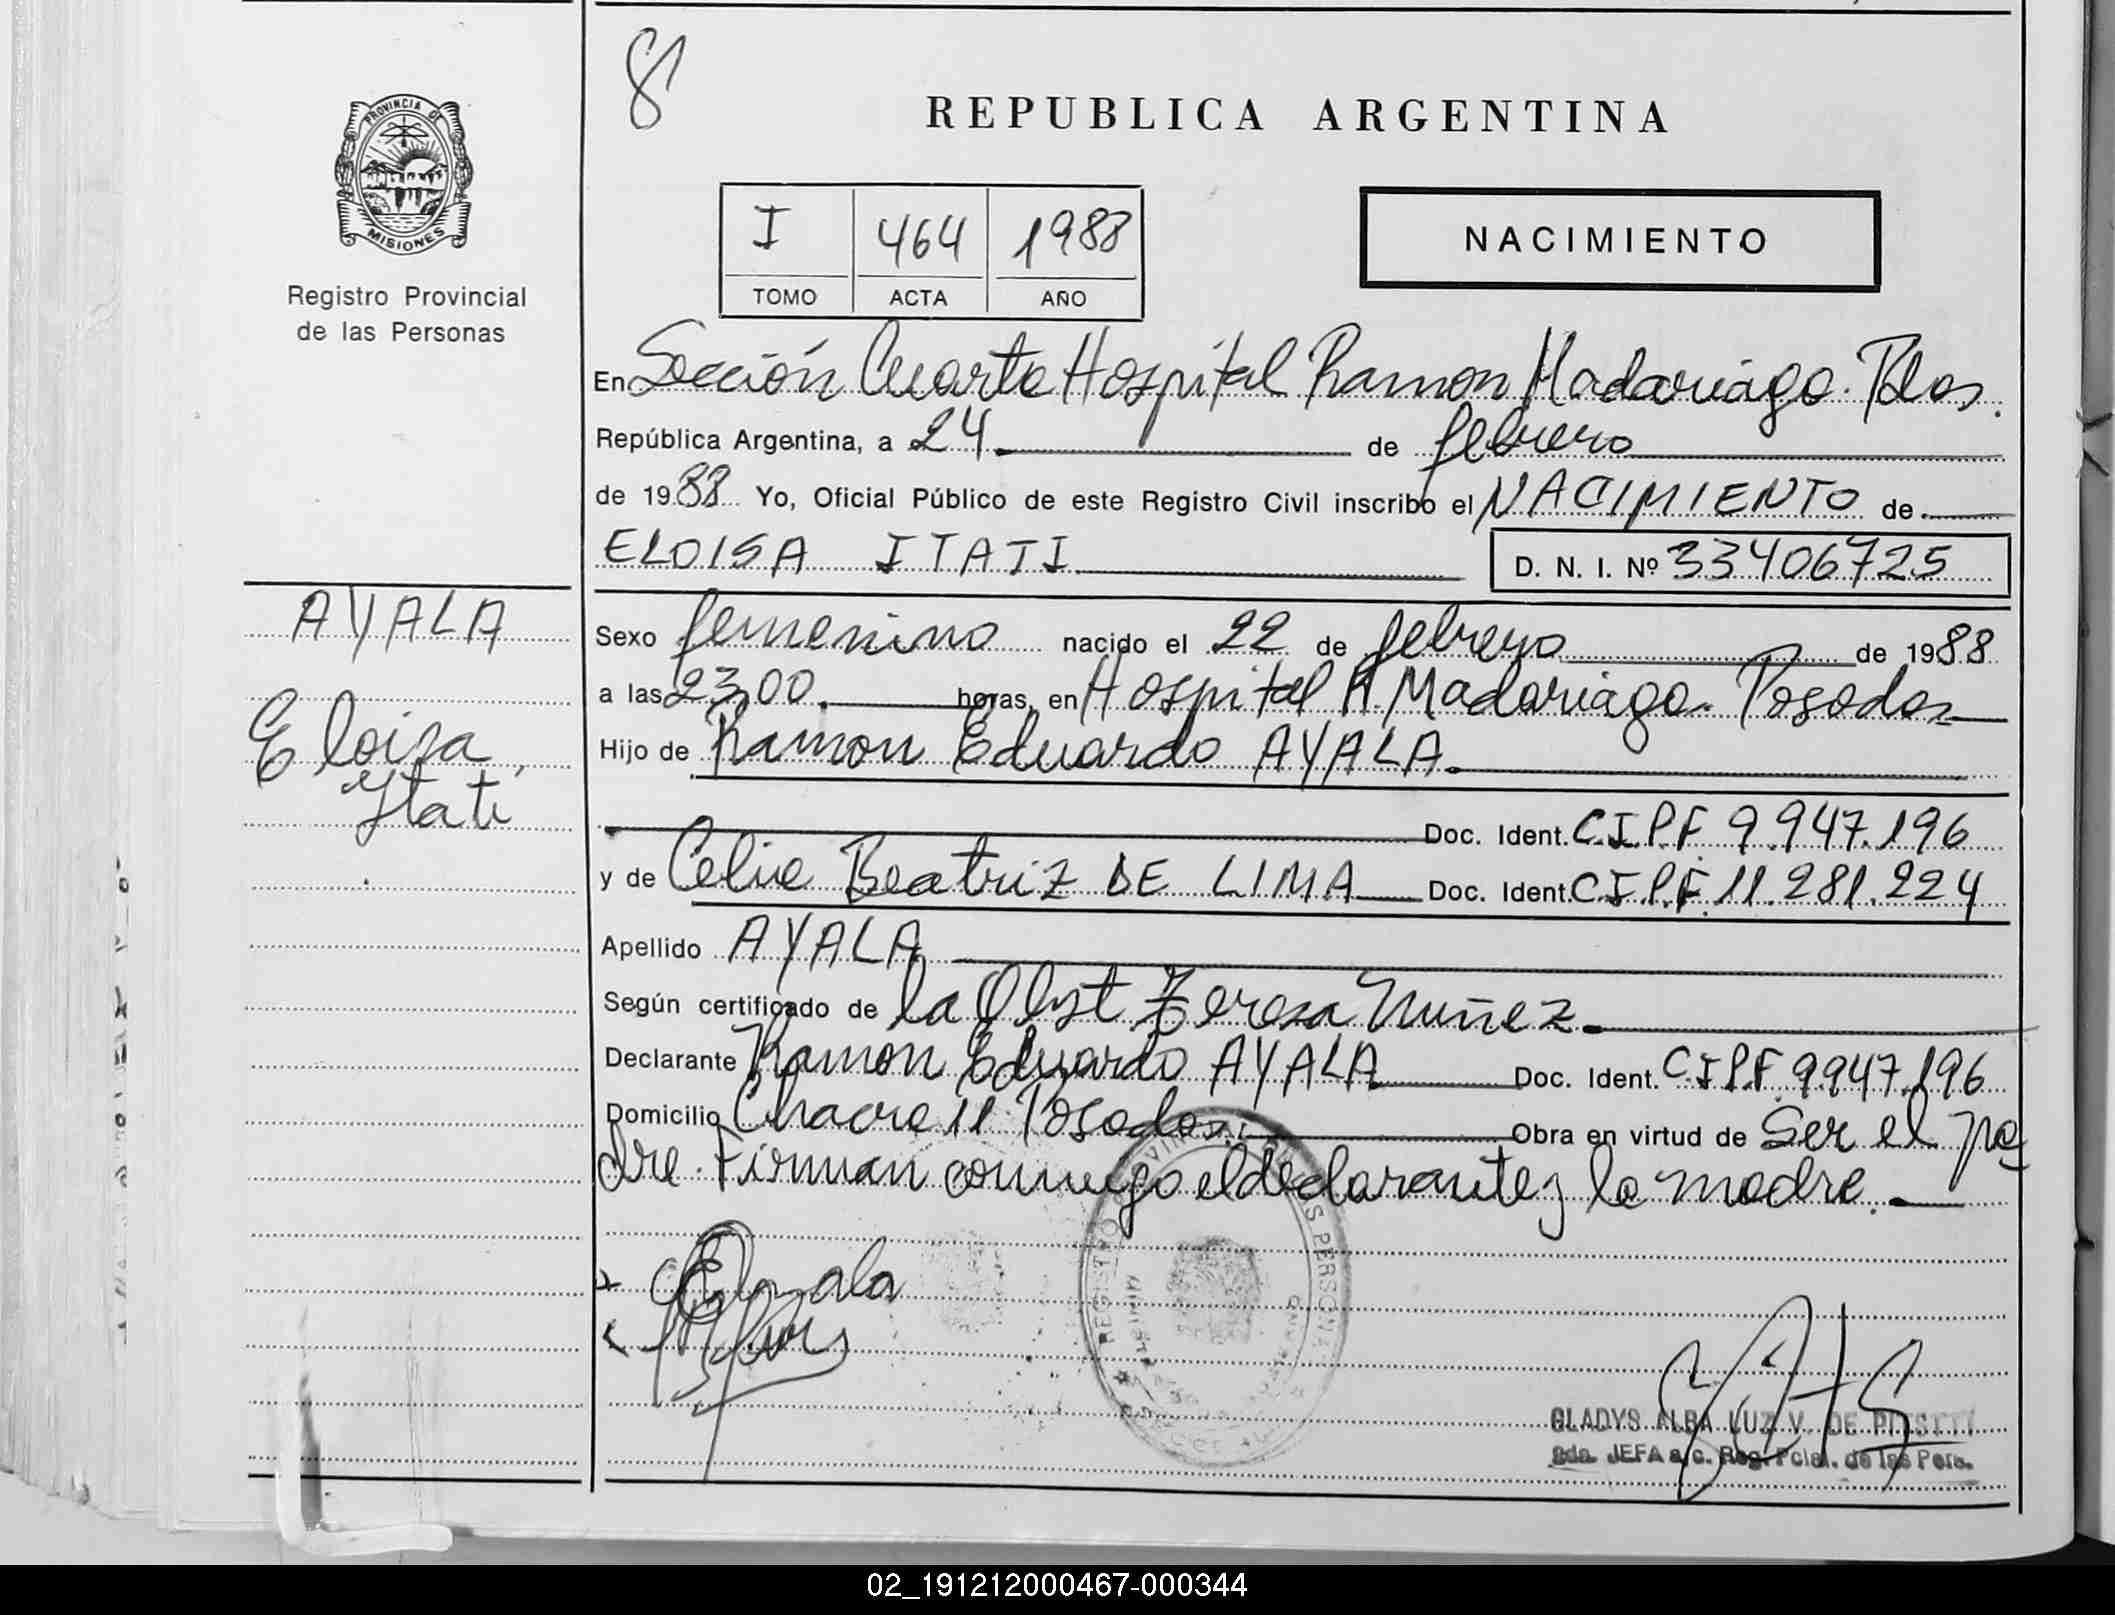 8
PROVINCIA DE
MISIONES
Registro Provincial
de las Personas
REPUBLICA ARGENTINA
I 464 1988
TOMO ACTA AÑO
NACIMIENTO
En Sección Cuarta Hospital Ramon Madariaga. Pdas.
República Argentina, a 24 de febrero
de 1988 Yo, Oficial Público de este Registro Civil inscribo el NACIMIENTO de
ELOISA ITATI D. N. I. Nº 33406725
AYALA
Eloisa,
Itati
Sexo femenino nacido el 22 de febrero de 1988
a las 23,00. horas, en Hospital R. Madariaga. Posadas
Hijo de Ramon Eduardo AYALA.
Doc. Ident. C.I.P.F. 9.947.196
y de Celia Beatriz DE LIMA Doc. Ident. C.I.P.F. 11.281.224
Apellido AYALA
Según certificado de la Obst Tereza Nuñez.
Declarante Ramon Eduardo AYALA Doc. Ident. C.I.P.F 9947.196
Domicilio Chacra 11 Posadas. Obra en virtud de Ser el pa
dre. Firman conmigo el declarante y la madre.
GLADYS ALBA LUZ V. DE
2da. JEFA a/c. Reg. Pcial. de las Pers.
02_191212000467-000344